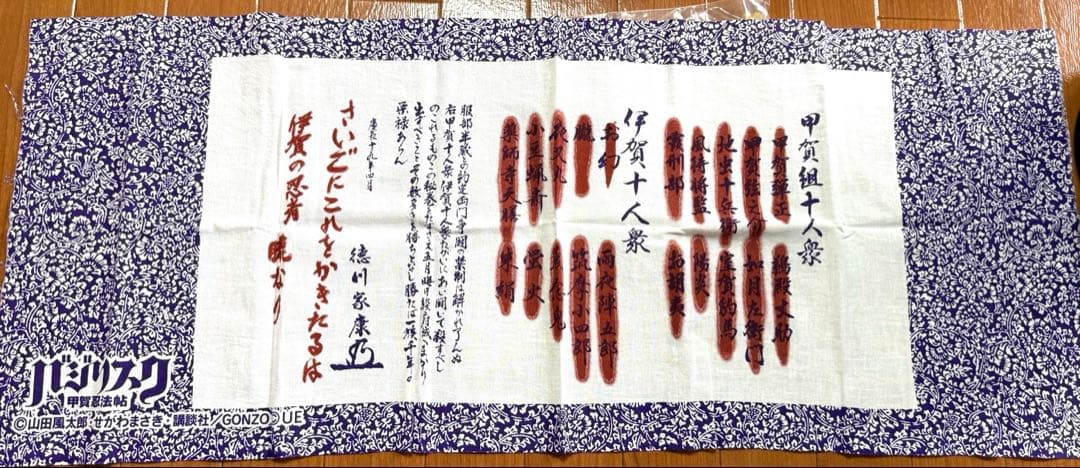 甲賀組十人衆
甲賀弾正
鵜殿丈助
甲賀弦之介
如月左衛門
地虫十兵衛
室賀豹馬
風待将監
陽炎
霞刑部
お胡夷
伊賀十人衆
お幻
雨夜陣五郎
朧
筑摩小四郎
夜叉丸
蓑念鬼
小豆蝋斎
蛍火
薬師寺天膳
朱絹
服部半蔵との約定両門争闘の禁制は解かれ了んぬ
右甲賀十人衆伊賀十人衆たがいにあい闘いて殺すべし
のこれるものこの秘巻をたずさえ五月晦日駿府城へまかり
出ずべきこと
その数多きを勝ちとなし勝たば一族千年の
栄禄あらん
慶長十九年四月
徳川家康
さいごにこれをかきたるは
伊賀の忍者 朧なり
バジリスク
甲賀忍法帖
©山田風太郎・せがわまさき・講談社/GONZO UE